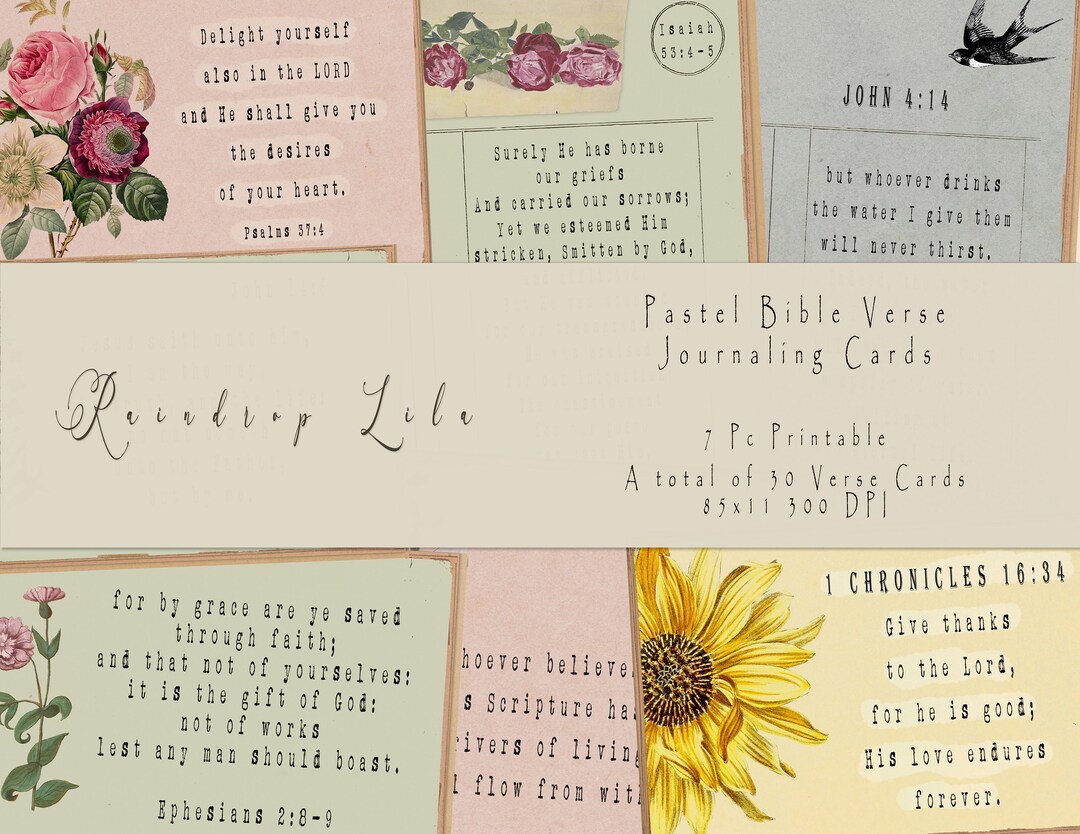 Delight yourself
also in the LORD
and He shall give you
the desires
of your heart.
Psalms 37:4
Isaiah
53:4-5
Surely He has borne
our griefs
And carried our sorrows;
Yet we esteemed Him
stricken, Smitten by God,
JOHN 4:14
but whoever drinks
the water I give them
will never thirst.
Raindrop Lila
Pastel Bible Verse
Journaling Cards
7 Pc Printable
A total of 30 Verse Cards
85x11 300 DPI
for by grace are ye saved
through faith;
and that not of yourselves:
it is the gift of God:
not of works
lest any man should boast.
Ephesians 2:8-9
hoever believe
s Scripture ha
rivers of living
l flow from wit
1 CHRONICLES 16:34
Give thanks
to the Lord,
for he is good;
His love endures
forever.